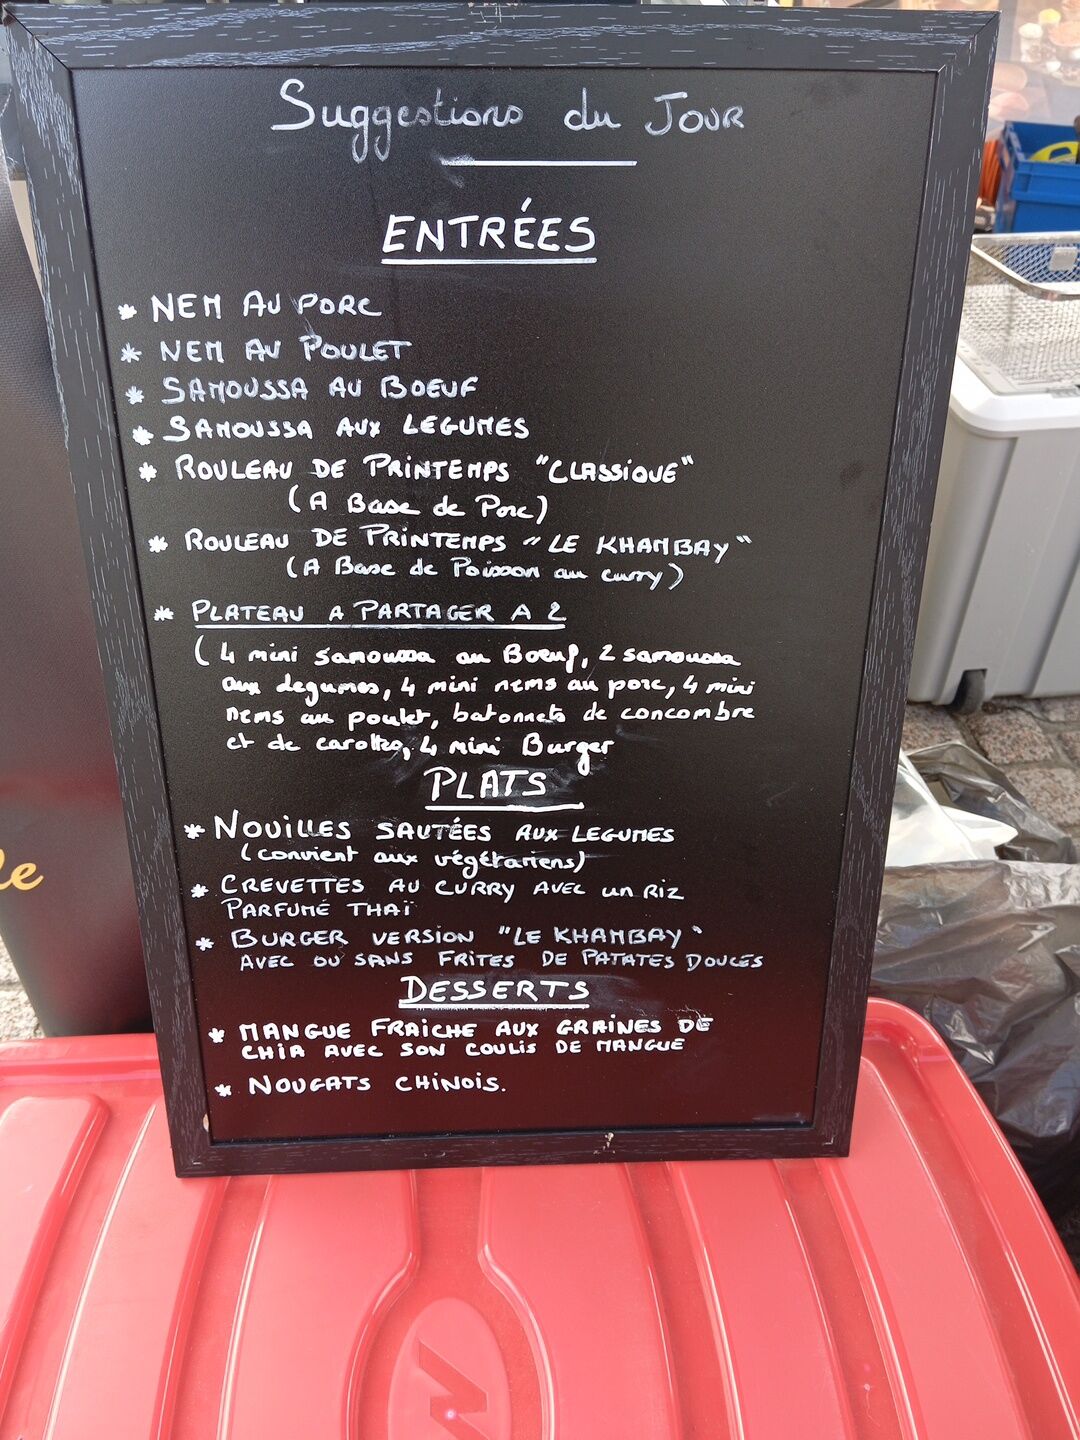 Suggestions du Jour
ENTRÉES
* NEM AU PORC
* NEM AU POULET
* SAMOUSSA AU BOEUF
* SAMOUSSA AUX LEGUMES
* ROULEAU DE PRINTEMPS "CLASSIQUE"
(A Base de Porc)
* ROULEAU DE PRINTEMPS "LE KHAMBAY"
(A Base de Poisson au curry)
* PLATEAU A PARTAGER A 2
(4 mini samoussa au Boeuf, 2 samoussa
aux legumes, 4 mini nems au porc, 4 mini
nems au poulet, batonnets de concombre
et de carottes, 4 mini Burger
PLATS
* NOUILLES SAUTÉES AUX LEGUMES
(convient aux végétariens)
* CREVETTES AU CURRY AVEC un RIZ
PARFUMÉ THAÏ
* BURGER VERSION "LE KHAMBAY"
AVEC OU SANS FRITES DE PATATES DOUCES
DESSERTS
* MANGUE FRAICHE AUX GRAINES DE
CHIA AVEC SON COULIS DE MANGUE
* NOUGATS CHINOIS.